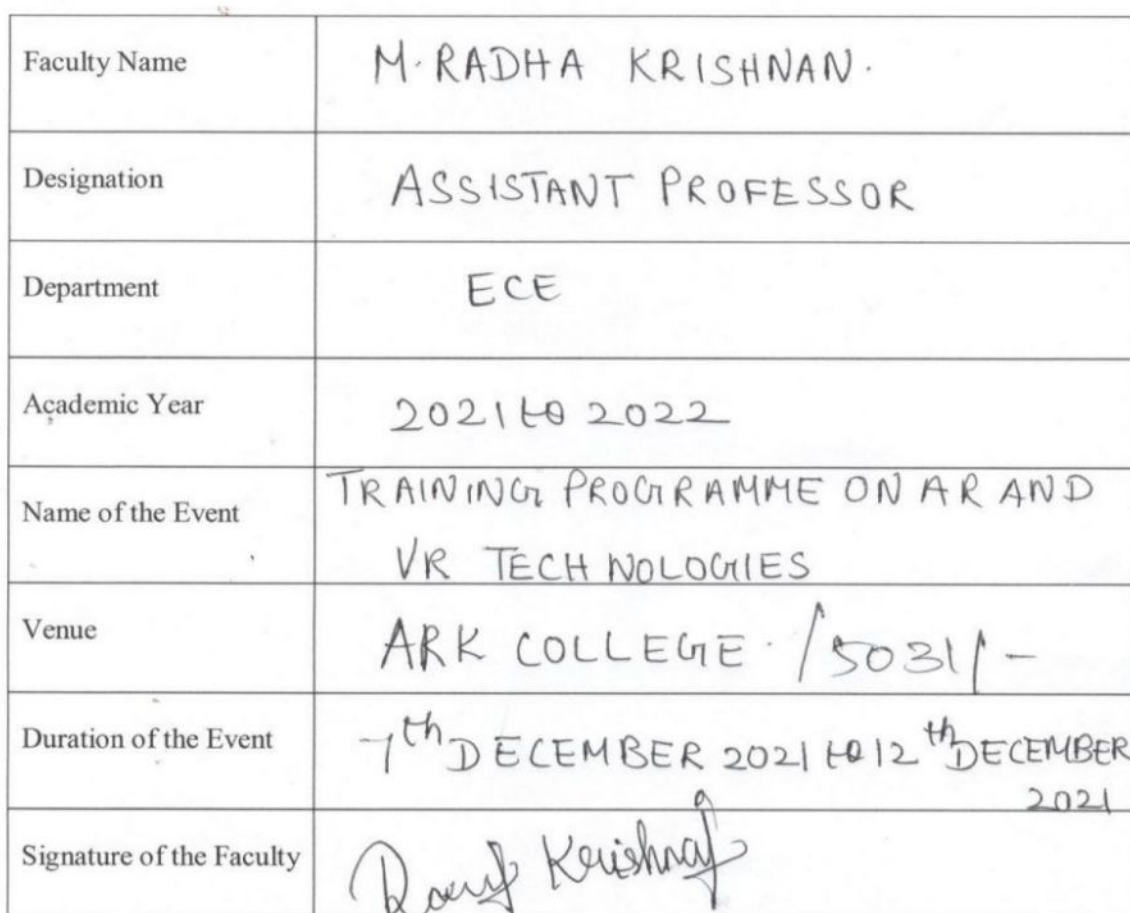 Faculty Name M. RADHA KRISHNAN.
Designation ASSISTANT PROFESSOR
Department ECE
Academic Year 2021 to 2022
Name of the Event TRAINING PROGRAMME ON AR AND
VR TECHNOLOGIES
Venue ARK COLLEGE. /5031/-
Duration of the Event 7th DECEMBER 2021 to 12th DECEMBER
2021
Signature of the Faculty Krishna